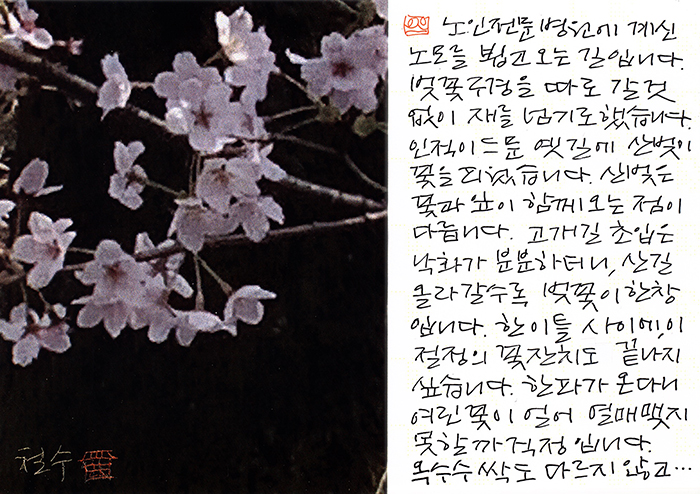 노인전문병원에 계신
노모를 뵙고 오는 길입니다.
벚꽃구경을 따로 갈 것
없이 재를 넘기로 했습니다.
인적이 드문 옛길에 산벚이
꽃을 피웠습니다. 산벚은
꽃과 잎이 함께 오는 점이
다릅니다. 고개길 초입은
낙화가 분분하더니, 산길
올라갈수록 벚꽃이 한창
입니다. 한 이틀 사이에, 이
절정의 꽃잔치도 끝나지
싶습니다. 한파가 온다니
여린 꽃이 얼어 열매맺지
못할까 걱정입니다.
옥수수 싹도 다르지 않고…
철수